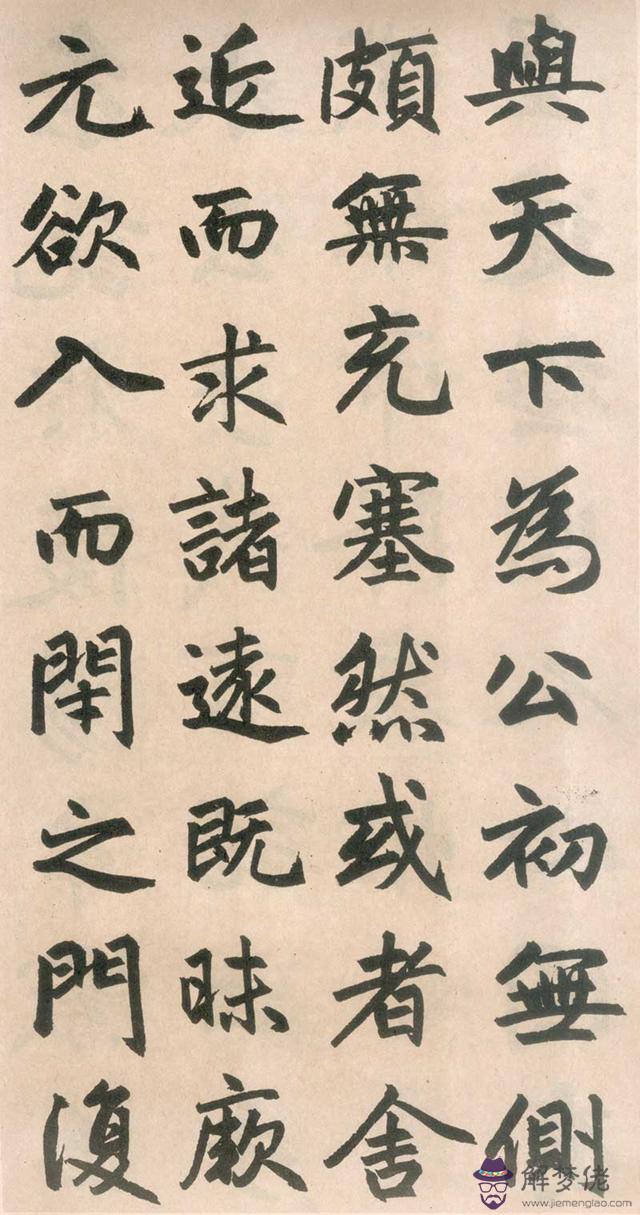 與天下為公初無側
頗無充塞然或者舍
近而求諸遠既昧厥
元欲入而閉之門復
解梦佬
www.jiemenglao.com